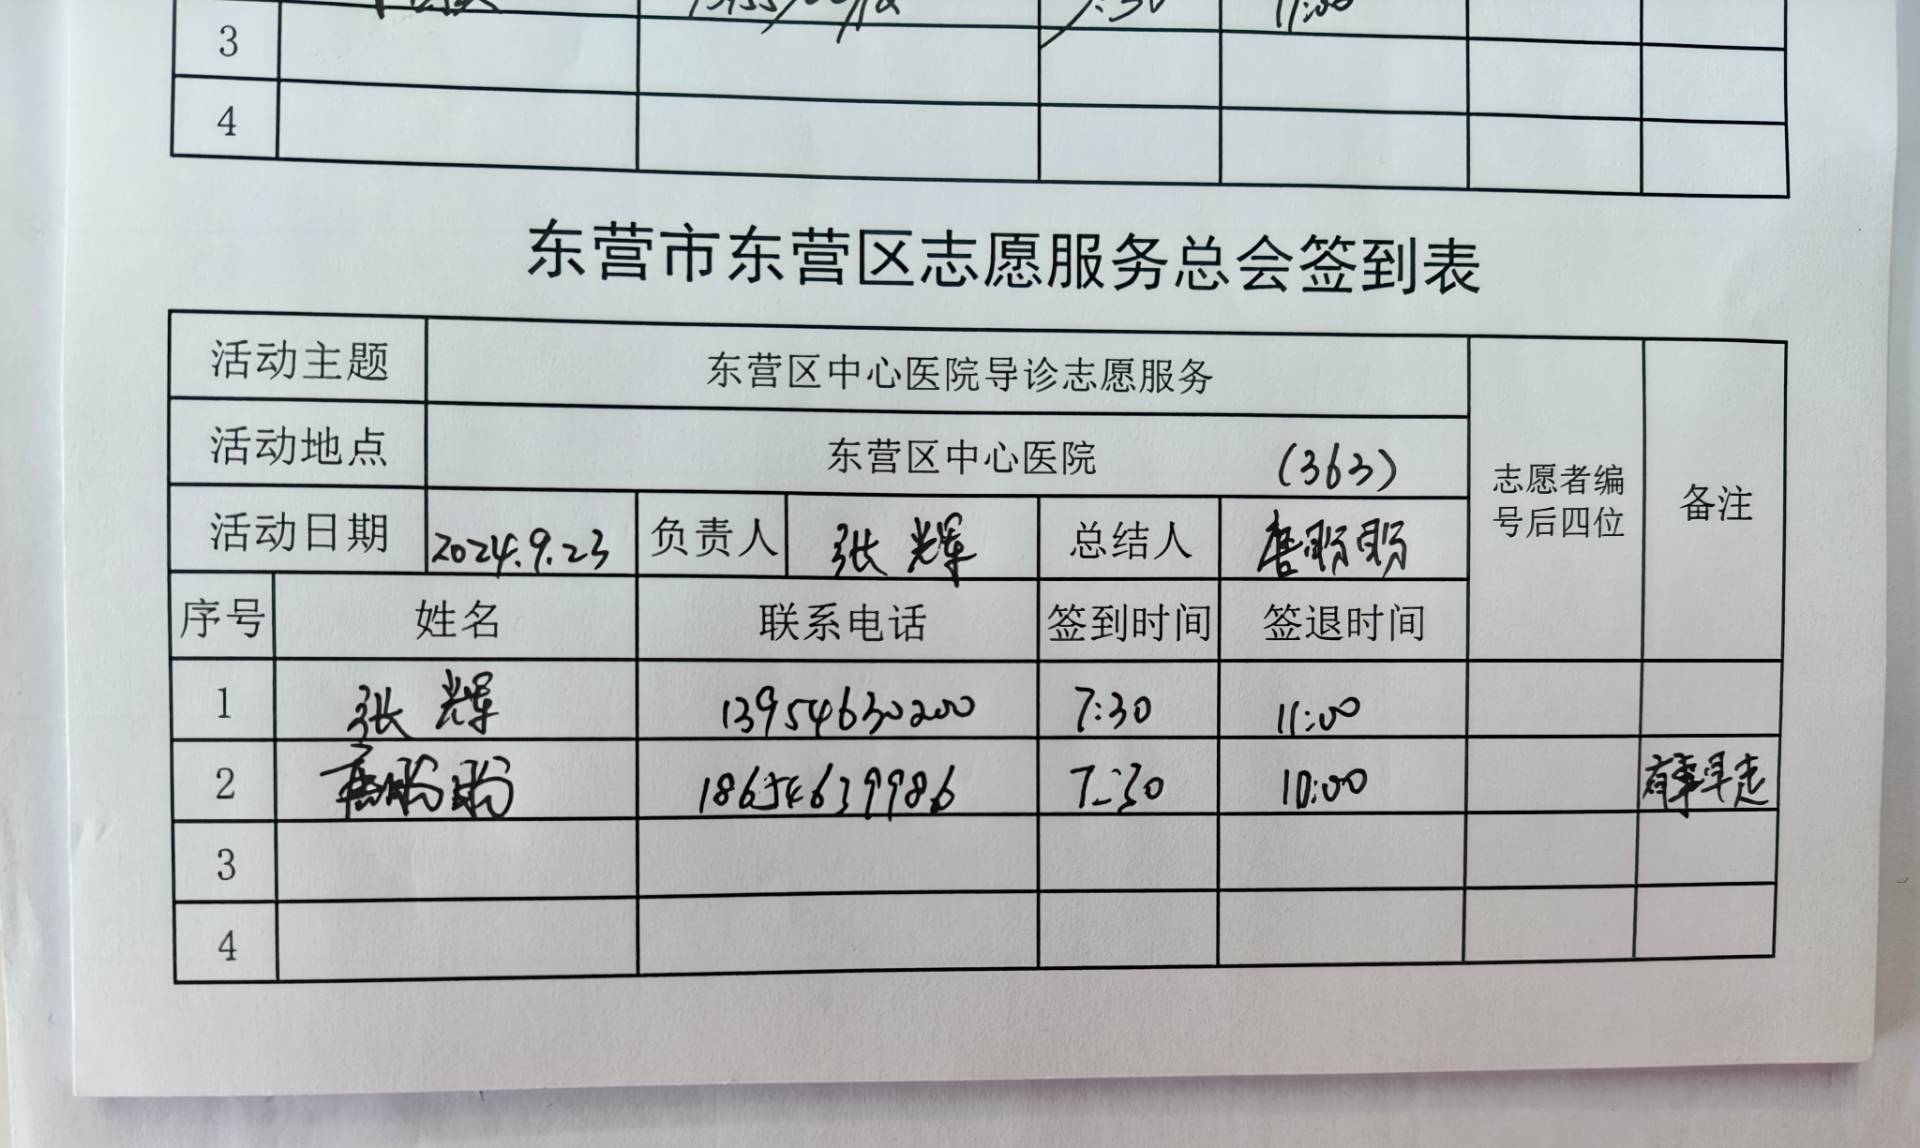 3
4
东营市东营区志愿服务总会签到表
活动主题 东营区中心医院导诊志愿服务
活动地点 东营区中心医院 (363)
志愿者编号后四位 备注
活动日期 2024.9.23 负责人 张辉 总结人 唐盼盼
序号 姓名 联系电话 签到时间 签退时间
1 张辉 13954630200 7:30 11:00
2 唐盼盼 18654639986 7:30 10:00 有事早走
3
4